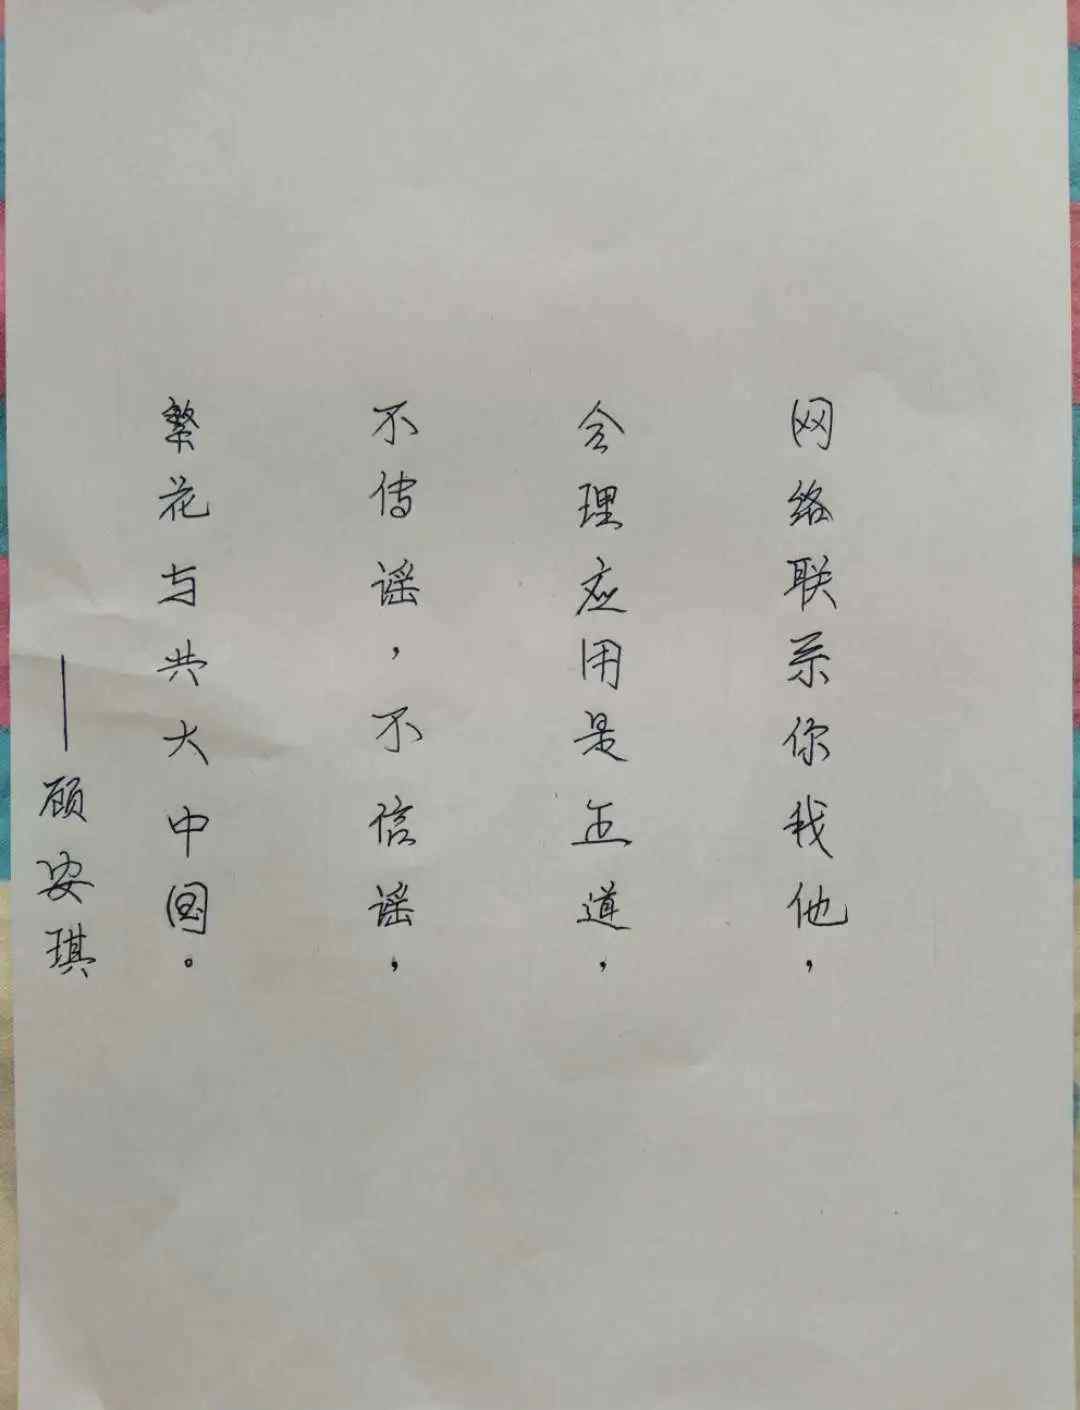 网络联系你我他，
合理应用是正道，
不传谣，不信谣，
繁花与共大中国。
——顾安琪